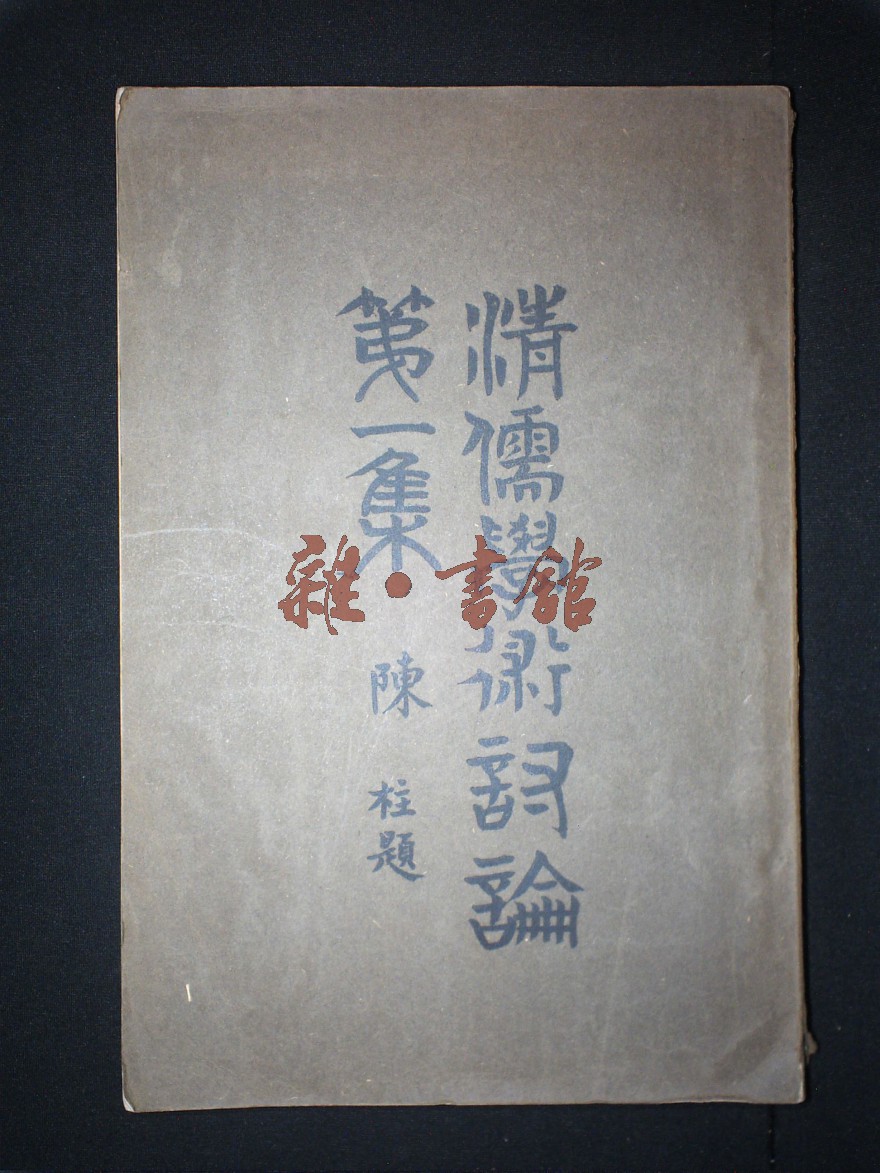 清儒學術討論
第一集
陳柱題
雜·書館